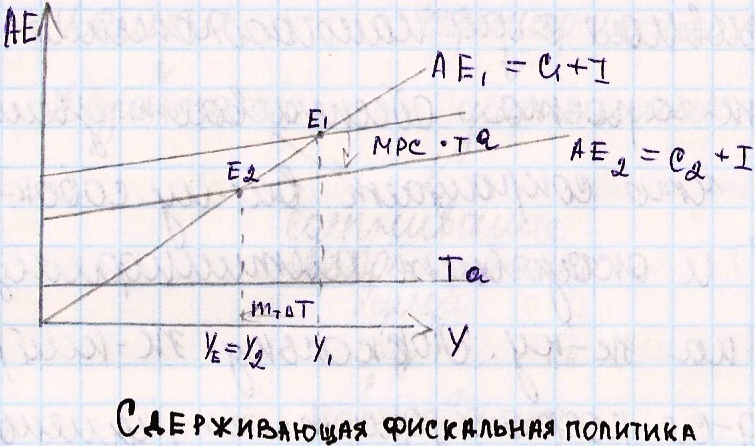 AE
AE₁ = C₁ + I
E₁
MPC · Ta
AE₂ = C₂ + I
E₂
Ta
mₜΔT
Y_E = Y₂
Y₁
Y
Сдерживающая фискальная политика